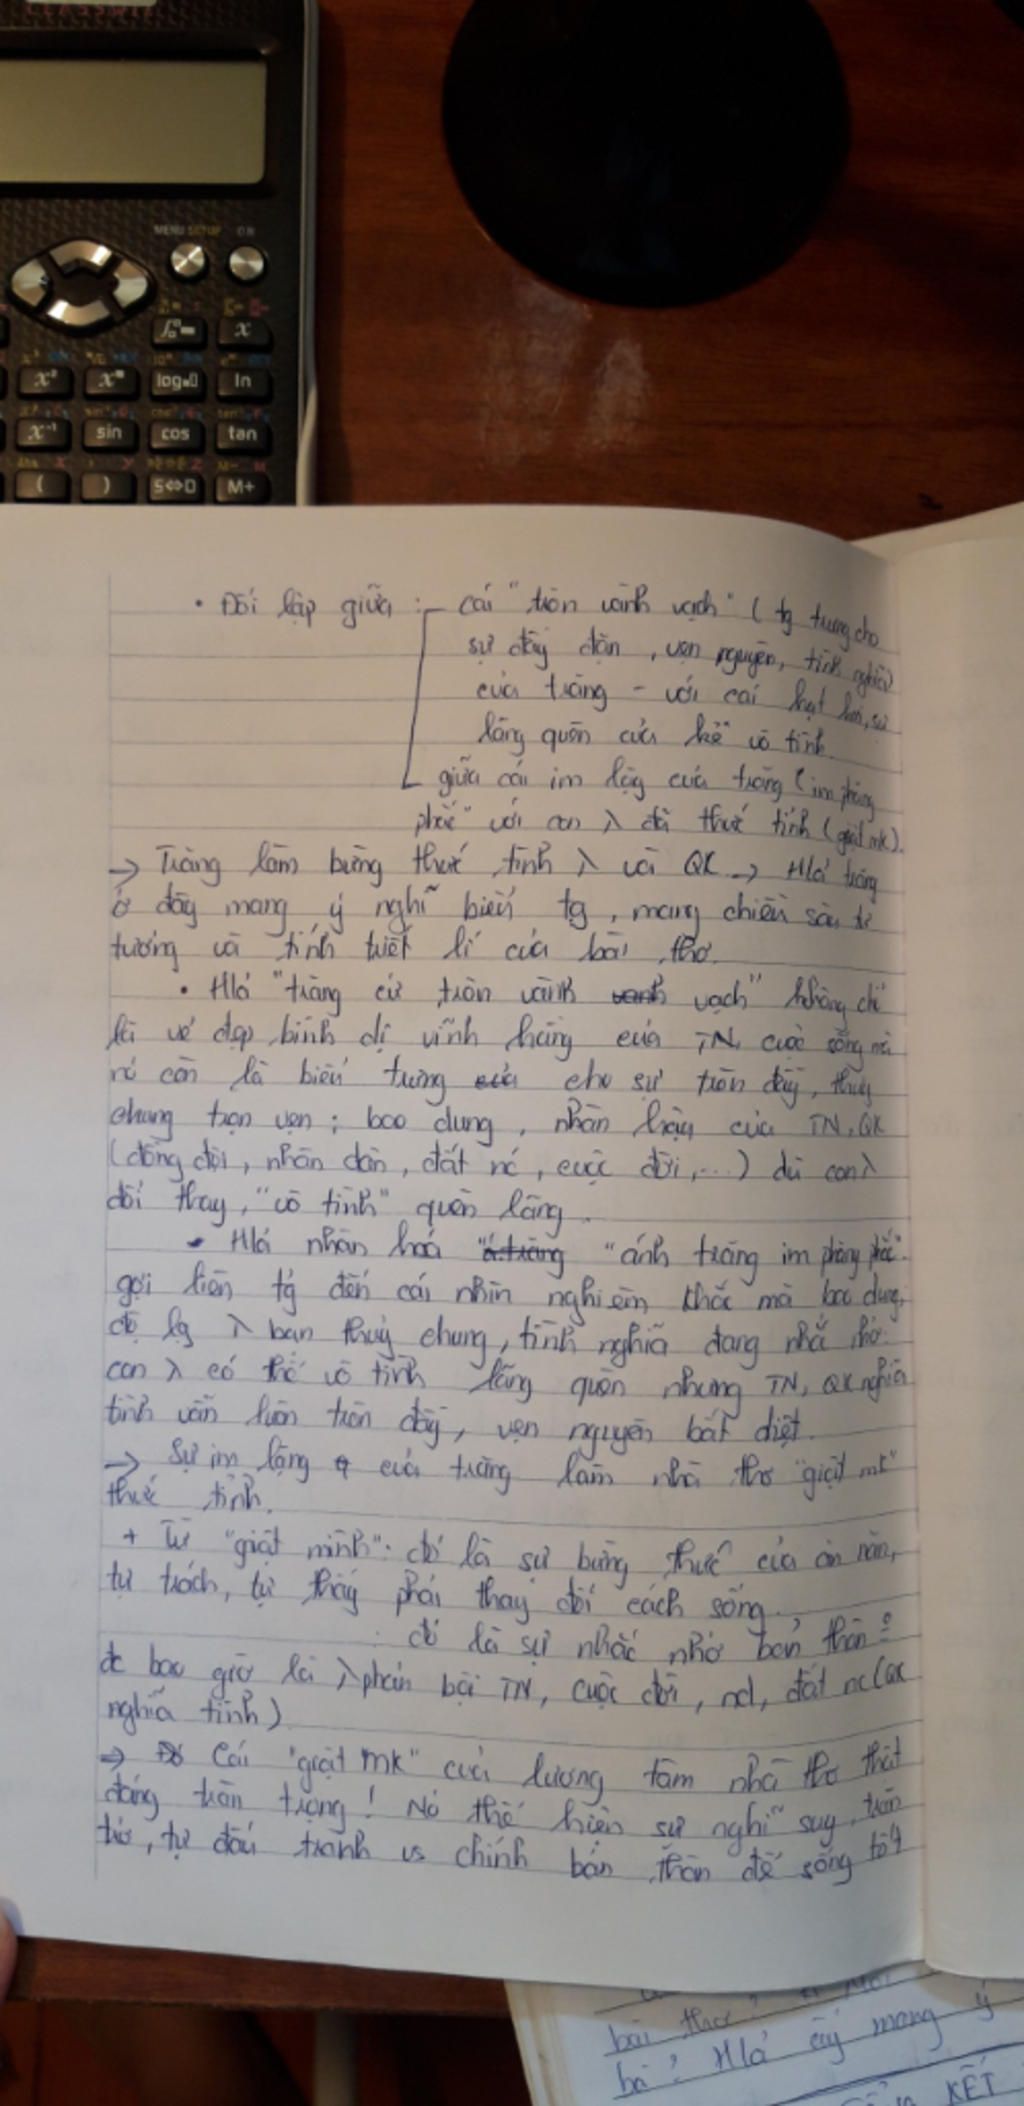 CLASSWIZ
MENU SETUP ON
x
log
ln
sin cos tan
( ) S⇔D M+
• Đối lập giữa : - cái "tròn vành vạch" ( tg trưng cho
sự đầy đặn, vẹn nguyên, tình nghĩa
của trăng - với cái hụt hơi, sự
lãng quên của kẻ vô tình
giữa cái im lặng của trăng (im phăng
phắc" với con λ đã thức tỉnh (giật mk).
→ Trăng làm bừng thức tỉnh λ và QK → Hlá trăng
ở đây mang ý nghĩ biểu tg, mang chiều sâu tư
tưởng và tính triết lí của bài thơ.
• Hlá "trăng cứ tròn vành vạch" không chỉ
là vẻ đẹp bình dị vĩnh hằng của TN, cuộc sống mà
nó còn là biểu trưng cho sự tròn đầy, thuỷ
chung trọn vẹn ; bao dung, nhân hậu của TN, QK
(đồng đội, nhân dân, đất nc, cuộc đời,...) dù con λ
đổi thay, "vô tình" quên lãng.
• Hlá nhân hoá "ánh trăng im phăng phắc"
gợi liên tg đến cái nhìn nghiêm khắc mà bao dung,
độ lg λ bạn thuỷ chung, tình nghĩa đang nhắc nhở
con λ có thể vô tình lãng quên nhưng TN, QK nghĩa
tình vẫn luôn tròn đầy, vẹn nguyên bất diệt.
→ Sự im lặng của trăng làm nhà thơ "giật mk"
thức tỉnh.
+ Từ "giật mình": đó là sự bừng thức của ăn năn,
tự trách, tự thấy phải thay đổi cách sống.
đó là sự nhắc nhở bản thân :
đc bao giờ là λ phản bội TN, cuộc đời, nd, đất nc (QK
nghĩa tình)
⇒ Cái "giật mk" của lương tâm nhà thơ thật
đáng trân trọng! Nó thể hiện sự nghĩ suy, trăn
trở, tự đấu tranh vs chính bản thân để sống tốt
bài thơ
Hlá ấy mang ý
KẾT